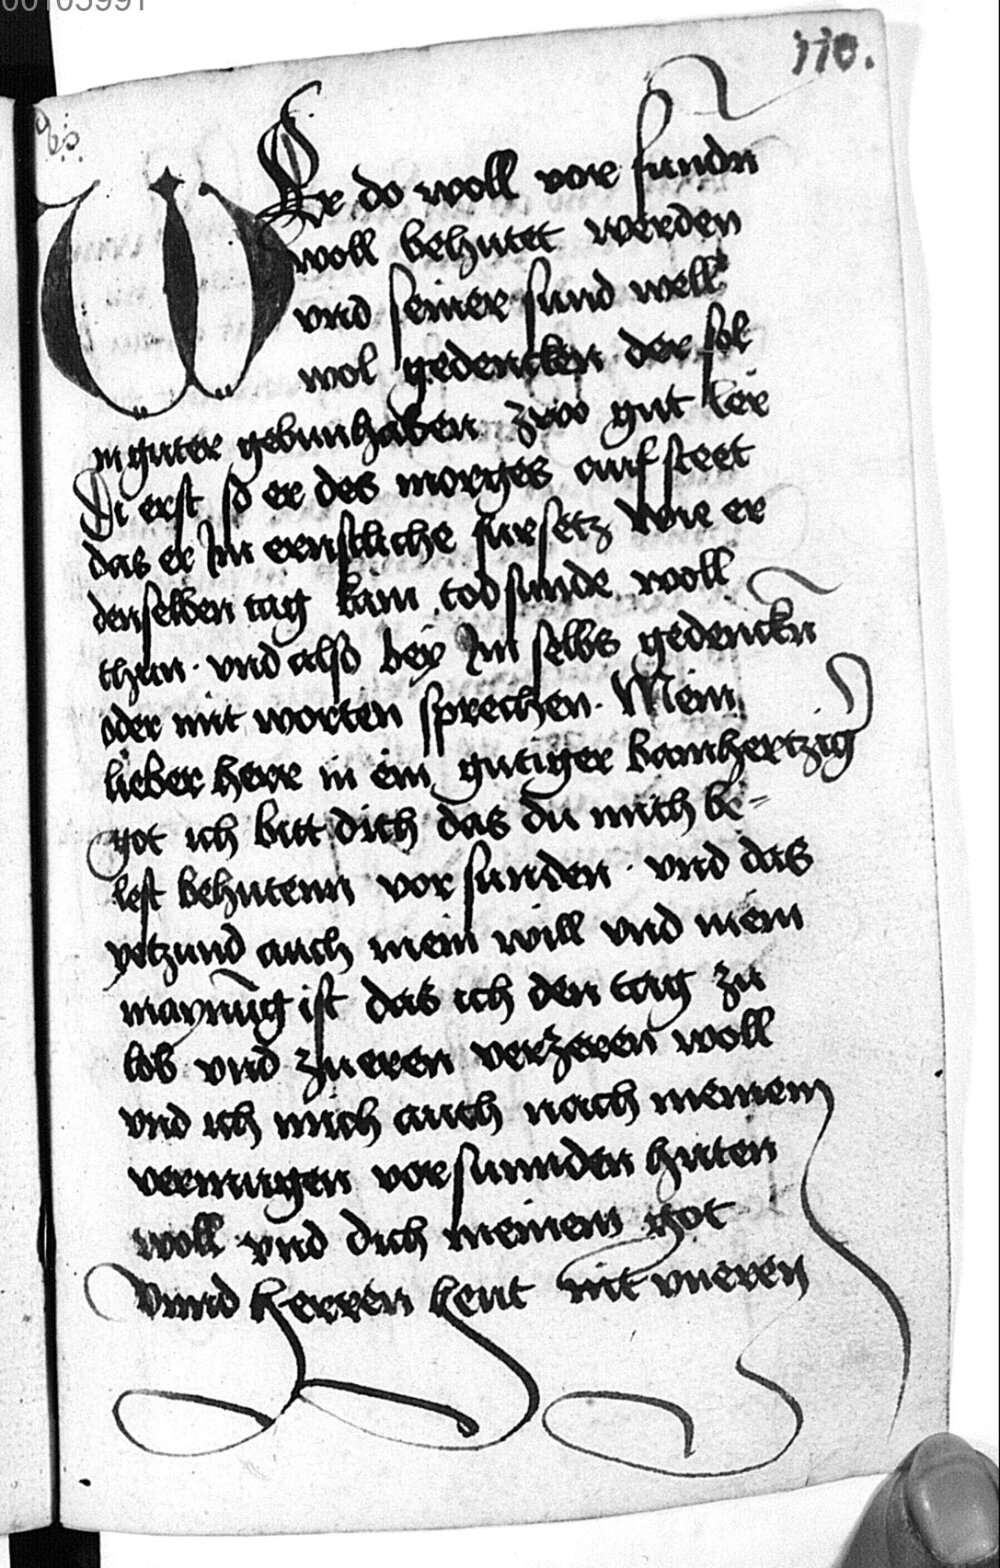 00103991
110.
WEr do woll vor sundn
woll behutet werden
vnd seiner sund well
wol gedencken der sol
in guter gebunhaben zwo gut ler
Di erst so er des morges auf steet
das er Im ernstliche fursetz wie er
denselben tag kain todsunde woll
thun · vnd also bey Im selbs gedenckn
oder mit worten sprechen · Mein
lieber herre in ein gutiger barmhertzig
got ich bitt dich das du mich be-
lest behutenn vor sunden · vnd das
yetzund auch mein will vnd mein
maynūg ist das ich den tag zu
lob vnd zu eren verzeren woll
vnd ich mich auch nach meinem
vermugen vor sunnden huten
woll vnd dich meinem got
vnnd herren heut nit vneren